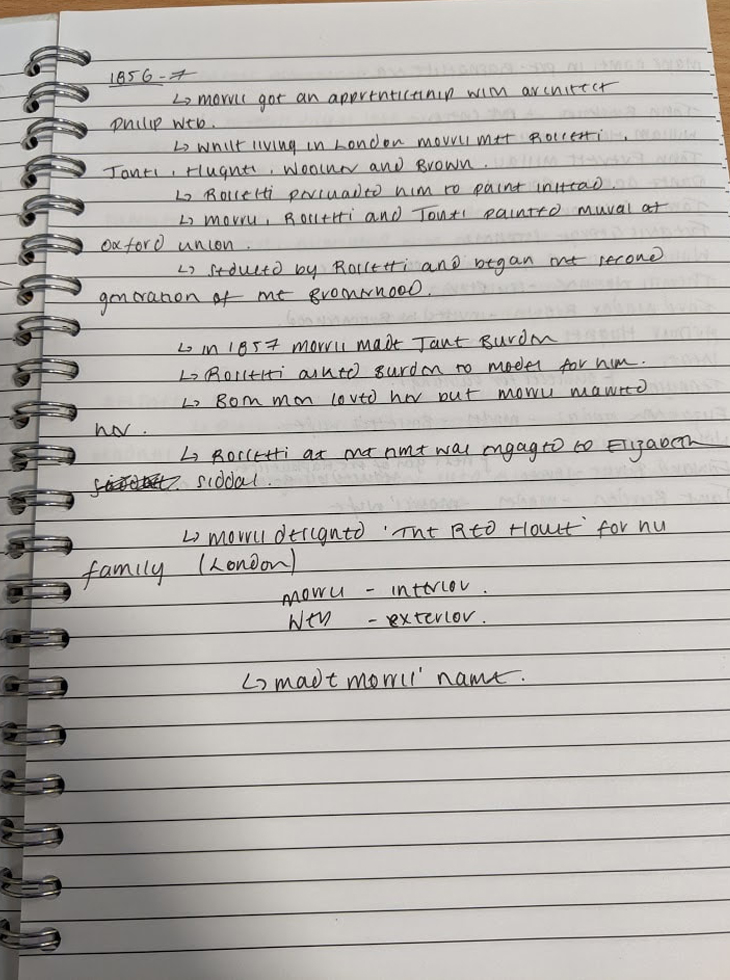 1856-7
↳ Morris got an apprenticeship with architect
Philip Web.
↳ Whilst living in London Morris met Rossetti,
Jones, Hughes, Woolner and Brown.
↳ Rossetti persuaded him to paint instead.
↳ Morris, Rossetti and Jones painted mural at
Oxford union.
↳ seduced by Rossetti and began the second
generation of the Brotherhood.
↳ in 1857 Morris made Jane Burdon
↳ Rossetti asked Burdon to model for him.
↳ Both men loved her but Morris married
her.
↳ Rossetti at the time was engaged to Elizabeth
siddal.
↳ Morris designed 'The Red House' for his
family (London)
Morris - interior.
Web - exterior.
↳ made Morris' name.